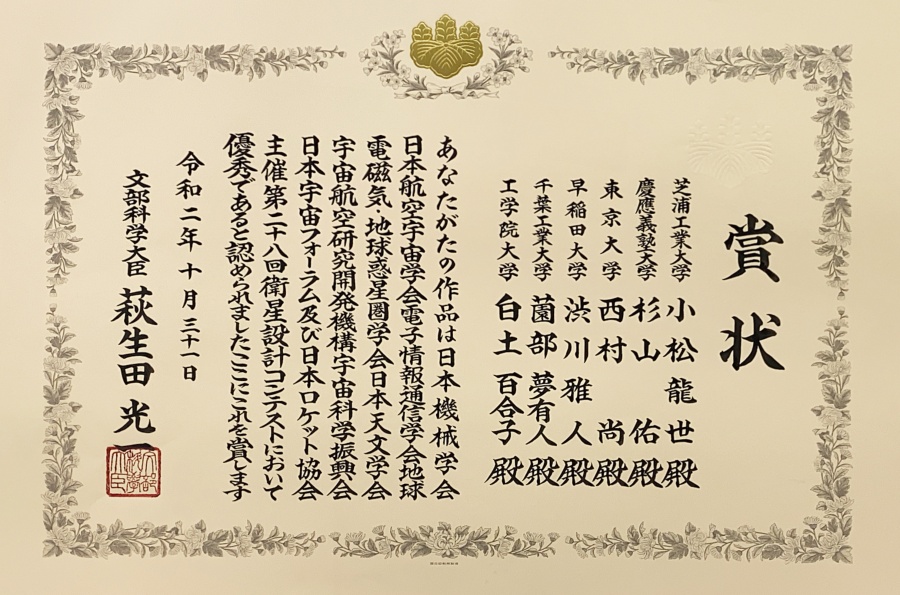 賞状
芝浦工業大学 小松龍世殿
慶應義塾大学 杉山佑殿
東京大学 西村尚殿
早稲田大学 渋川雅人殿
千葉工業大学 薗部夢有人殿
工学院大学 白土百合子殿
あなたがたの作品は日本機械学会
日本航空宇宙学会電子情報通信学会地球
電磁気・地球惑星圏学会日本天文学会
宇宙航空研究開発機構宇宙科学振興会
日本宇宙フォーラム及び日本ロケット協会
主催第二十八回衛星設計コンテストにおいて
優秀であると認められましたここにこれを賞します
令和二年十月三十一日
文部科学大臣 萩生田光一